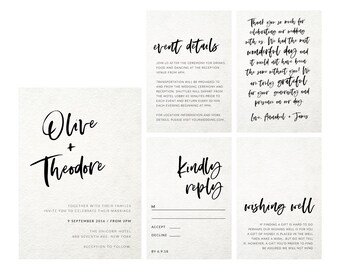 Olive
+
Theodore
TOGETHER WITH THEIR FAMILIES
INVITE YOU TO CELEBRATE THEIR MARRIAGE
9 SEPTEMBER 2016 / FROM 3PM
THE UNICORN HOTEL
RECEPTION TO FOLLOW
event details
JOIN US AFTER THE CEREMONY FOR DINNER
FOOD AND DANCING AT THE RECEPTION
VENUE FROM 6PM
TRANSPORTATION WILL BE PROVIDED TO
AND FROM THE WEDDING CEREMONY AND
RECEPTION. SHUTTLES WILL DEPART FROM
THE HOTEL LOBBY 30 MINUTES PRIOR TO
EACH EVENT AND RETURN EVERY
FOR LOCATION INFORMATION AND MORE
DETAILS, PLEASE VISIT
Thank you so much for
celebrating our wedding
with us. We had the most
wonderful day and
it could not have been
the same without you! We
are truly grateful
for your generosity and
presence on our day
Love, Annabel + James
kindly
reply
M
ACCEPT
DECLINE
BY 6.9.16
wishing well
IF FINDING A GIFT IS HARD TO DO
DON'T WORRY, WE HAVE AN IDEA FOR YOU
A GIFT OF MONEY IS PLACED IN THE WELL
THEN MAKE A WISH, BUT DO NOT TELL